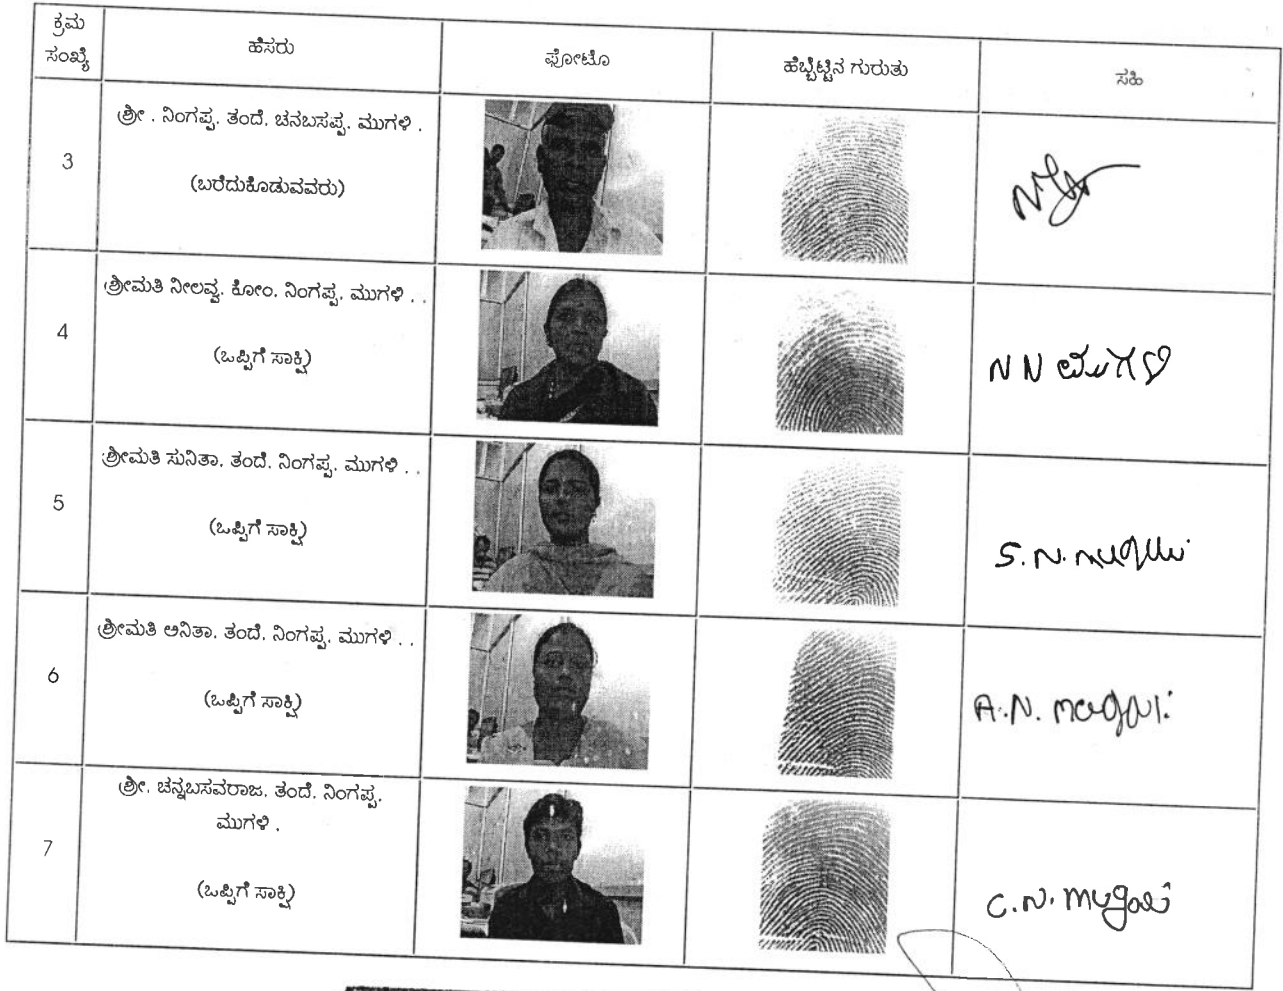 ಕ್ರಮ ಸಂಖ್ಯೆ ಹೆಸರು ಫೋಟೊ ಹೆಬ್ಬೆಟ್ಟಿನ ಗುರುತು ಸಹಿ
3 ಶ್ರೀ . ನಿಂಗಪ್ಪ. ತಂದೆ. ಚನಬಸಪ್ಪ. ಮುಗಳಿ .
(ಬರೆದುಕೊಡುವವರು)
4 ಶ್ರೀಮತಿ ನೀಲವ್ವ. ಕೋಂ. ನಿಂಗಪ್ಪ. ಮುಗಳಿ . .
(ಒಪ್ಪಿಗೆ ಸಾಕ್ಷಿ)
N N ಮುಗಳಿ
5 ಶ್ರೀಮತಿ ಸುನಿತಾ. ತಂದೆ. ನಿಂಗಪ್ಪ. ಮುಗಳಿ . .
(ಒಪ್ಪಿಗೆ ಸಾಕ್ಷಿ)
S. N.
6 ಶ್ರೀಮತಿ ಅನಿತಾ. ತಂದೆ. ನಿಂಗಪ್ಪ. ಮುಗಳಿ . .
(ಒಪ್ಪಿಗೆ ಸಾಕ್ಷಿ)
A. N.
7 ಶ್ರೀ. ಚನ್ನಬಸವರಾಜ. ತಂದೆ. ನಿಂಗಪ್ಪ.
ಮುಗಳಿ .
(ಒಪ್ಪಿಗೆ ಸಾಕ್ಷಿ)
C. N.